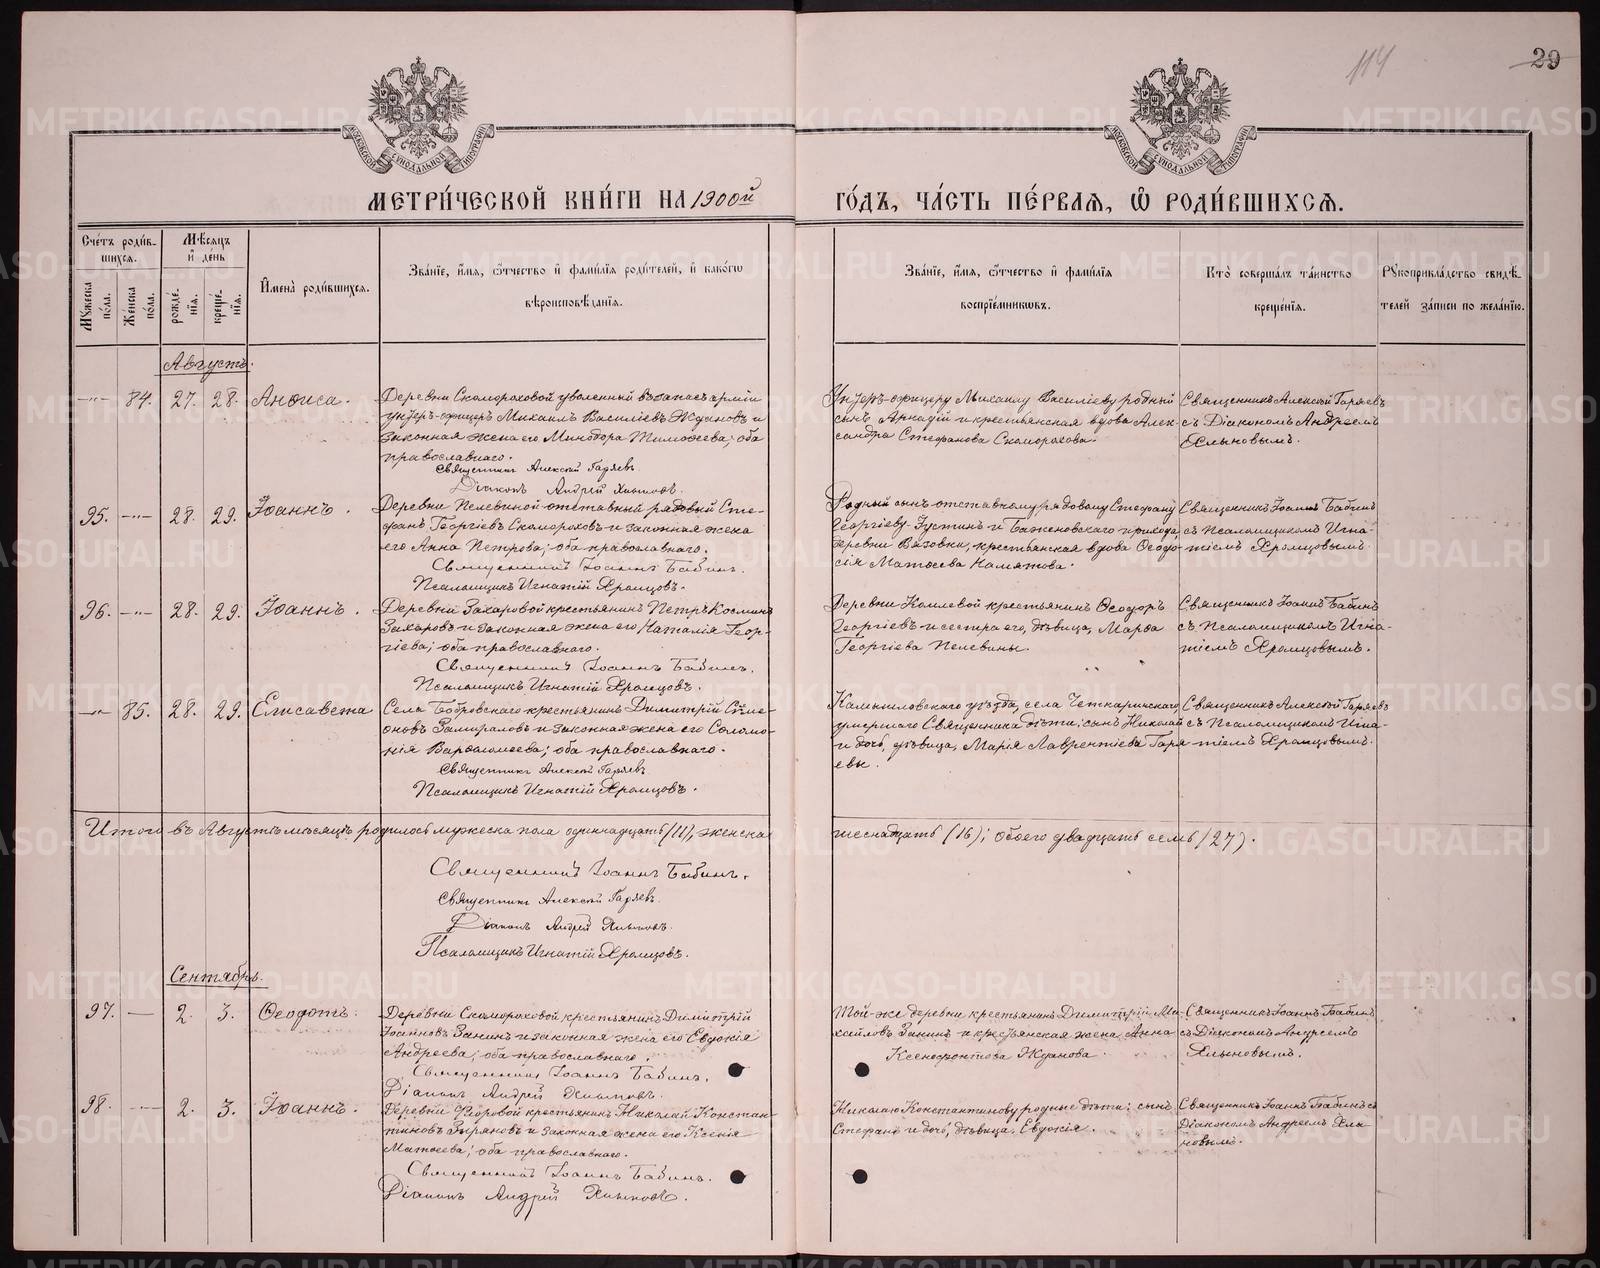 114
29
МЕТРИ́ЧЕСКОЙ КНИ́ГИ НА 1900й ГО́ДЪ, ЧА́СТЬ ПЕ́РВАЯ, Ѡ РОДИ́ВШИХСЯ.
Сче́тъ роди́в-
шихся.
Мꙋжеска по́ла.
Же́нска по́ла.
Мѣ́сяцъ и де́нь
рожде́нїя.
креще́нїя.
И҆мена̀ роди́вшихся.
Зва́нїе, и҆́мя, ѻ҆́тчество и҆ фами́лїя роди́телей, и҆ како́гѡ
вѣроисповѣ́данїя.
Зва́нїе, и҆́мя, ѻ҆́тчество и҆ фами́лїя
воспрїе́мникѡвъ.
Кто̀ соверша́лъ та́инство
креще́нїя.
Рꙋкоприкла́дство свидѣ́-
телей за́писи по жела́нїю.
Августъ.
—"— 84. 27. 28. Анѳиса.
Деревни Скомороховой уволенный въ запасъ арміи
унтеръ-офицеръ Михаилъ Василіевъ Ждановъ и
законная жена его Минодора Тимоѳеева; оба
православнаго.
Священникъ Алексій Гаряевъ.
Діаконъ Андрей Хлыновъ.
Унтеръ-офицеру Михаилу Василіеву родный
сынъ Аркадій и крестьянская вдова Алек-
сандра Стефанова Скоморохова.
Священникъ Алексій Гаряевъ
съ Діакономъ Андреемъ
Хлыновымъ.
95. —"— 28. 29. Іоаннъ.
Деревни Пелевиной отставный рядовый Сте-
фанъ Георгіевъ Скомороховъ и законная жена
его Анна Петрова; оба православнаго.
Священникъ Іоаннъ Бабинъ.
Псаломщикъ Игнатій Храмцовъ.
Родный сынъ отставному рядовому Стефану
Георгіеву Іустинъ и Баженовскаго прихода,
деревни Вязовки, крестьянская вдова Ѳеодо-
сія Матѳеева Намятова.
Священникъ Іоаннъ Бабинъ
съ Псаломщикомъ Игна-
тіемъ Храмцовымъ.
96. —"— 28. 29. Іоаннъ.
Деревни Захаровой крестьянинъ Петръ Косминъ
Захаровъ и законная жена его Наталія Геор-
гіева; оба православнаго.
Священникъ Іоаннъ Бабинъ.
Псаломщикъ Игнатій Храмцовъ.
Деревни Комлевой крестьянинъ Ѳеодоръ
Георгіевъ и сестра его, дѣвица, Марѳа
Георгіева Пелевины.
Священникъ Іоаннъ Бабинъ
съ Псаломщикомъ Игна-
тіемъ Храмцовымъ.
—"— 85. 28. 29. Елисавета
Села Бобровскаго крестьянинъ Димитрій Симе-
оновъ Замираловъ и законная жена его Соломо-
нія Варѳоломеева; оба православнаго.
Священникъ Алексій Гаряевъ.
Псаломщикъ Игнатій Храмцовъ.
Камышловскаго уѣзда, села Четкаринскаго
умершаго Священника дѣти: сынъ Николай
и дочь, дѣвица, Марія Лаврентіева Гаря-
евы.
Священникъ Алексій Гаряевъ
съ Псаломщикомъ Игна-
тіемъ Храмцовымъ.
Итого въ Августѣ мѣсяцѣ родилось мужеска пола одиннадцать (11), женска шеснадцать (16); обоего двадцать семь (27).
Священникъ Іоаннъ Бабинъ.
Священникъ Алексій Гаряевъ.
Діаконъ Андрей Хлыновъ.
Псаломщикъ Игнатій Храмцовъ.
Сентябрь.
97. — 2. 3. Ѳеодотъ.
Деревни Скомороховой крестьянинъ Димитрій
Іоанновъ Занинъ и законная жена его Евдокія
Андреева; оба православнаго.
Священникъ Іоаннъ Бабинъ.
Діаконъ Андрей Хлыновъ.
Той-же деревни крестьянинъ Димитрій Ми-
хайловъ Занинъ и крестьянская жена Анна
Ксенофонтова Жданова.
Священникъ Іоаннъ Бабинъ
съ Діакономъ Андреемъ
Хлыновымъ.
98. —"— 2. 3. Іоаннъ.
Деревни Ѳедоровой крестьянинъ Николай Констан-
тиновъ Зыряновъ и законная жена его Ксенія
Матѳеева; оба православнаго.
Священникъ Іоаннъ Бабинъ.
Діаконъ Андрей Хлыновъ.
Николаю Константинову родные дѣти: сынъ
Стефанъ и дочь, дѣвица, Евдокія.
Священникъ Іоаннъ Бабинъ съ
Діакономъ Андреемъ Хлы-
новымъ.